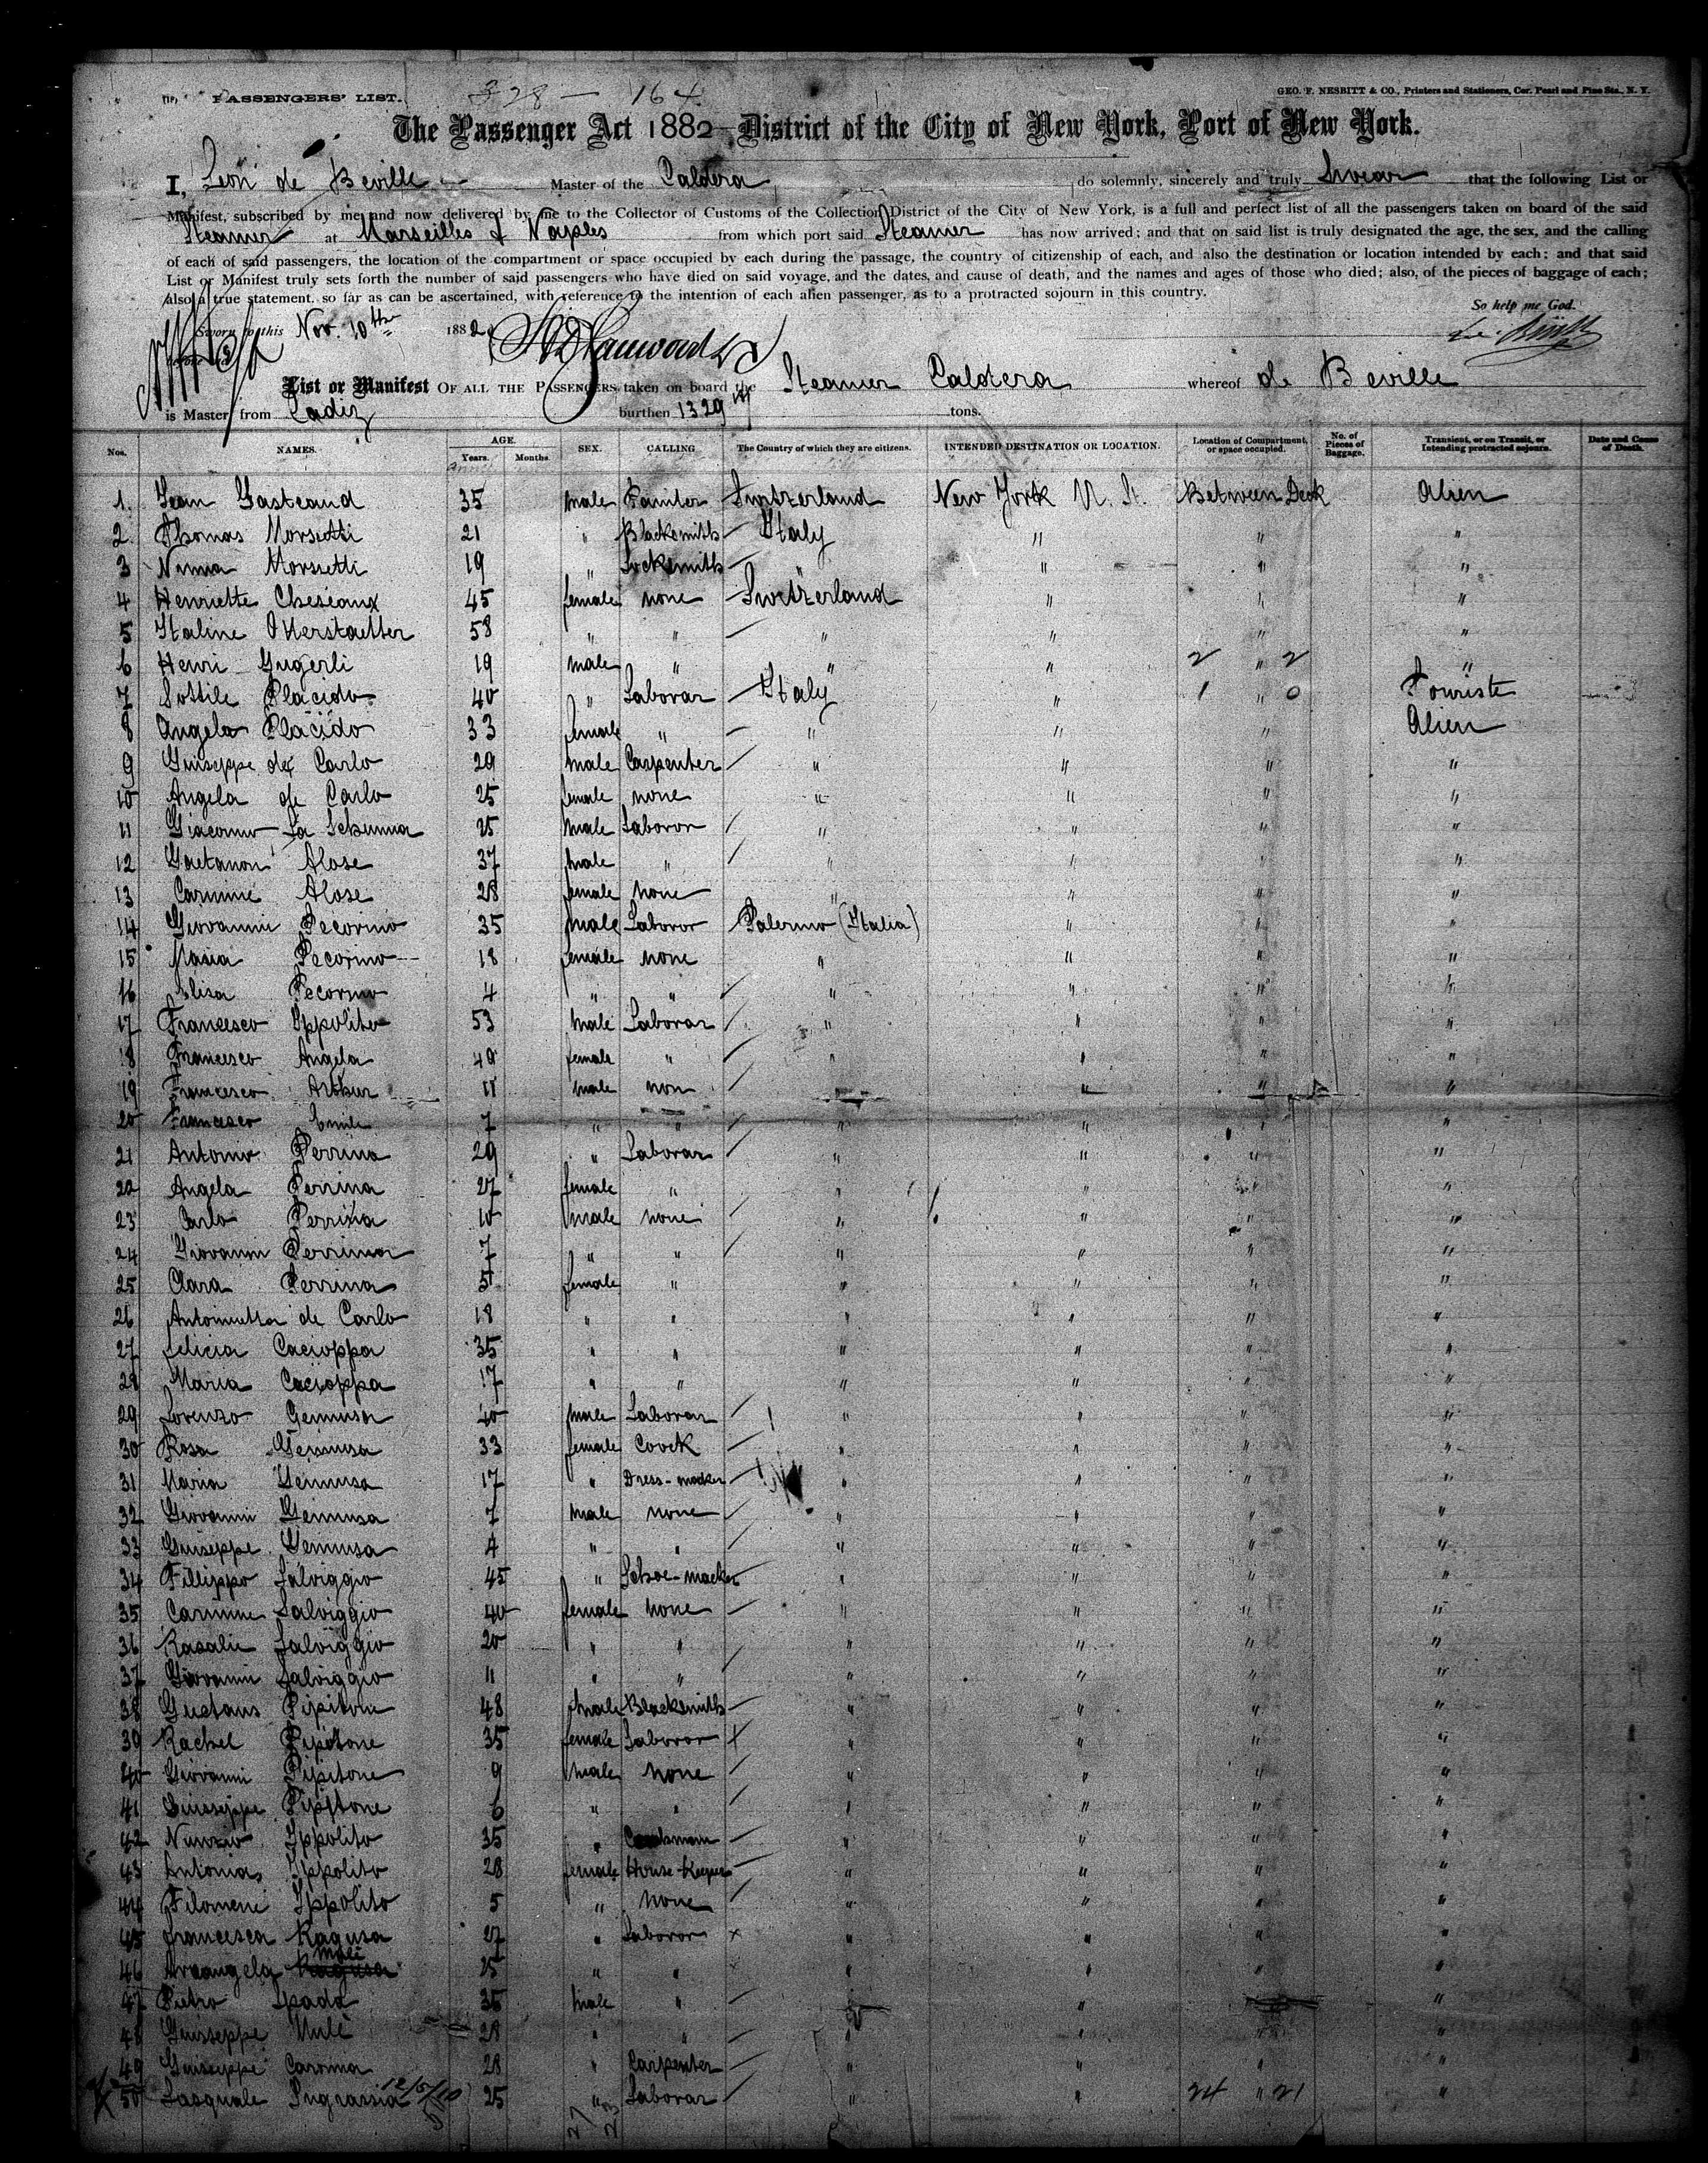 PASSENGERS' LIST.
328 — 164
GEO. F. NESBITT & CO., Printers and Stationers, Cor. Pearl and Pine Sts., N. Y.
The Passenger Act 1882 District of the City of New York, Port of New York.
I, Leon de Beville Master of the Caldera do solemnly, sincerely and truly Swear that the following List or
Manifest, subscribed by me and now delivered by me to the Collector of Customs of the Collection District of the City of New York, is a full and perfect list of all the passengers taken on board of the said
Steamer at Marseilles & Naples from which port said Steamer has now arrived; and that on said list is truly designated the age, the sex, and the calling
of each of said passengers, the location of the compartment or space occupied by each during the passage, the country of citizenship of each, and also the destination or location intended by each: and that said
List or Manifest truly sets forth the number of said passengers who have died on said voyage, and the dates, and cause of death, and the names and ages of those who died; also, of the pieces of baggage of each;
also a true statement, so far as can be ascertained, with reference to the intention of each alien passenger, as to a protracted sojourn in this country.
So help me God.
Sworn to this Nov. 10th 188
before me
List or Manifest OF ALL THE PASSENGERS taken on board the Steamer Caldera whereof de Beville
is Master, from Cadiz burthen 1329 tons.
Nos. NAMES. AGE. Years. Months. SEX. CALLING The Country of which they are citizens. INTENDED DESTINATION OR LOCATION. Location of Compartment, or space occupied. No. of Pieces of Baggage. Transient, or on Transit, or intending protracted sojourn. Date and Cause of Death.
1. Jean Gasteaud 35 male Painter Switzerland New York U. St. Between Deck Alien
2 Thomas Morsetti 21 " Blacksmith Italy " " "
3 Morsetti 19 " Locksmith " " " "
4 Henriette Cheseaux 45 female none Switzerland " " "
5 58 " " " " " "
6 Henri Gugerli 19 male " " " 2 " 2 "
7 Sottile Placido 40 " Laborar Italy " 1 " 0 Touriste
8 Angela Placido 33 female " " " " Alien
9 Guiseppe de Carlo 29 male Carpenter " " " "
10 Angela de Carlo 25 female none " " " "
11 Giacomo La Schuma 25 male Laboror " " " "
12 Gaetanon Alose 37 male " " " " "
13 Carmine Alose 28 female none " " " "
14 Giovanni Pecorino 35 male Laboror Palermo (Italia) " " "
15 Maria Pecorino 18 female none " " " "
16 Elisa Pecorino 4 " " " " " "
17 Francesco Ippolito 53 male Laborar " " " "
18 Francesco Angela 49 female " " " " "
19 Francesco Arthur 11 male non " " " "
20 Francesco Emile 7 " " " " " "
21 Antonio Perrina 29 " Laborar " " " "
22 Angela Perrina 27 female " " " " "
23 Carlo Perrina 10 male none " " " "
24 Giovanni Perrina 7 " " " " " "
25 Clara Perrina 5 female " " " " "
26 Antoinetta de Carlo 18 " " " " " "
27 Felicia Cacioppa 35 " " " " " "
28 Maria Cacioppa 17 " " " " " "
29 Lorenzo Gemusa 40 male Laborar " " " "
30 Rosa Gemusa 33 female Coock " " " "
31 Maria Gemusa 17 " Dress-macker " " " "
32 Giovanni Gemusa 7 male none " " " "
33 Guiseppe Gemusa 4 " " " " " "
34 Fillippo Salviggio 45 " Schoe-macker " " " "
35 Carmine Salviggio 40 female none " " " "
36 Rasalie Salviggio 20 " " " " " "
37 Giovanni Salviggio 11 " " " " " "
38 Gustans Pipitone 48 male Blacksmith " " " "
39 Rachel Pipitone 35 female Laboror " " " "
40 Giovanni Pipitone 9 male none " " " "
41 Guisseppe Pipitone 6 " " " " " "
42 Nunzio Ippolito 35 " " " " "
43 Antonia Ippolito 28 female House-Keeper " " " "
44 Filomene Ippolito 5 " none " " " "
45 Francesca Ragusa 27 " Laboror " " " "
46 Arcangela Mule 25 " " " " " "
47 Pietro Spada 35 male " " " " "
48 Guisseppe Mule 28 " " " " " "
49 Guisseppe Caronna 28 " Carpenter " " " "
50 Pasquale Ingrassia 12/5/10 25 " Laborar " " 24 " 21 "